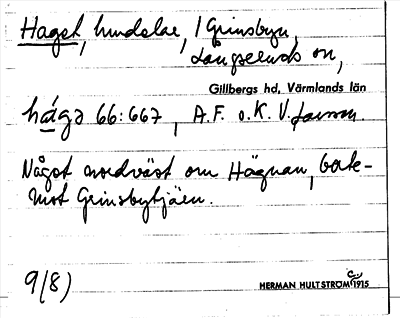 Haget, hundelar, i Grinsbyn,
Långseruds sn,
Gillbergs hd, Värmlands län
hágə 66:667, A.F. o. K.V. Larsson.
Något nordväst om Hägnan, bort-
mot Grinsbytjärn.
9/8)
HERMAN HULTSTRÖM 1915